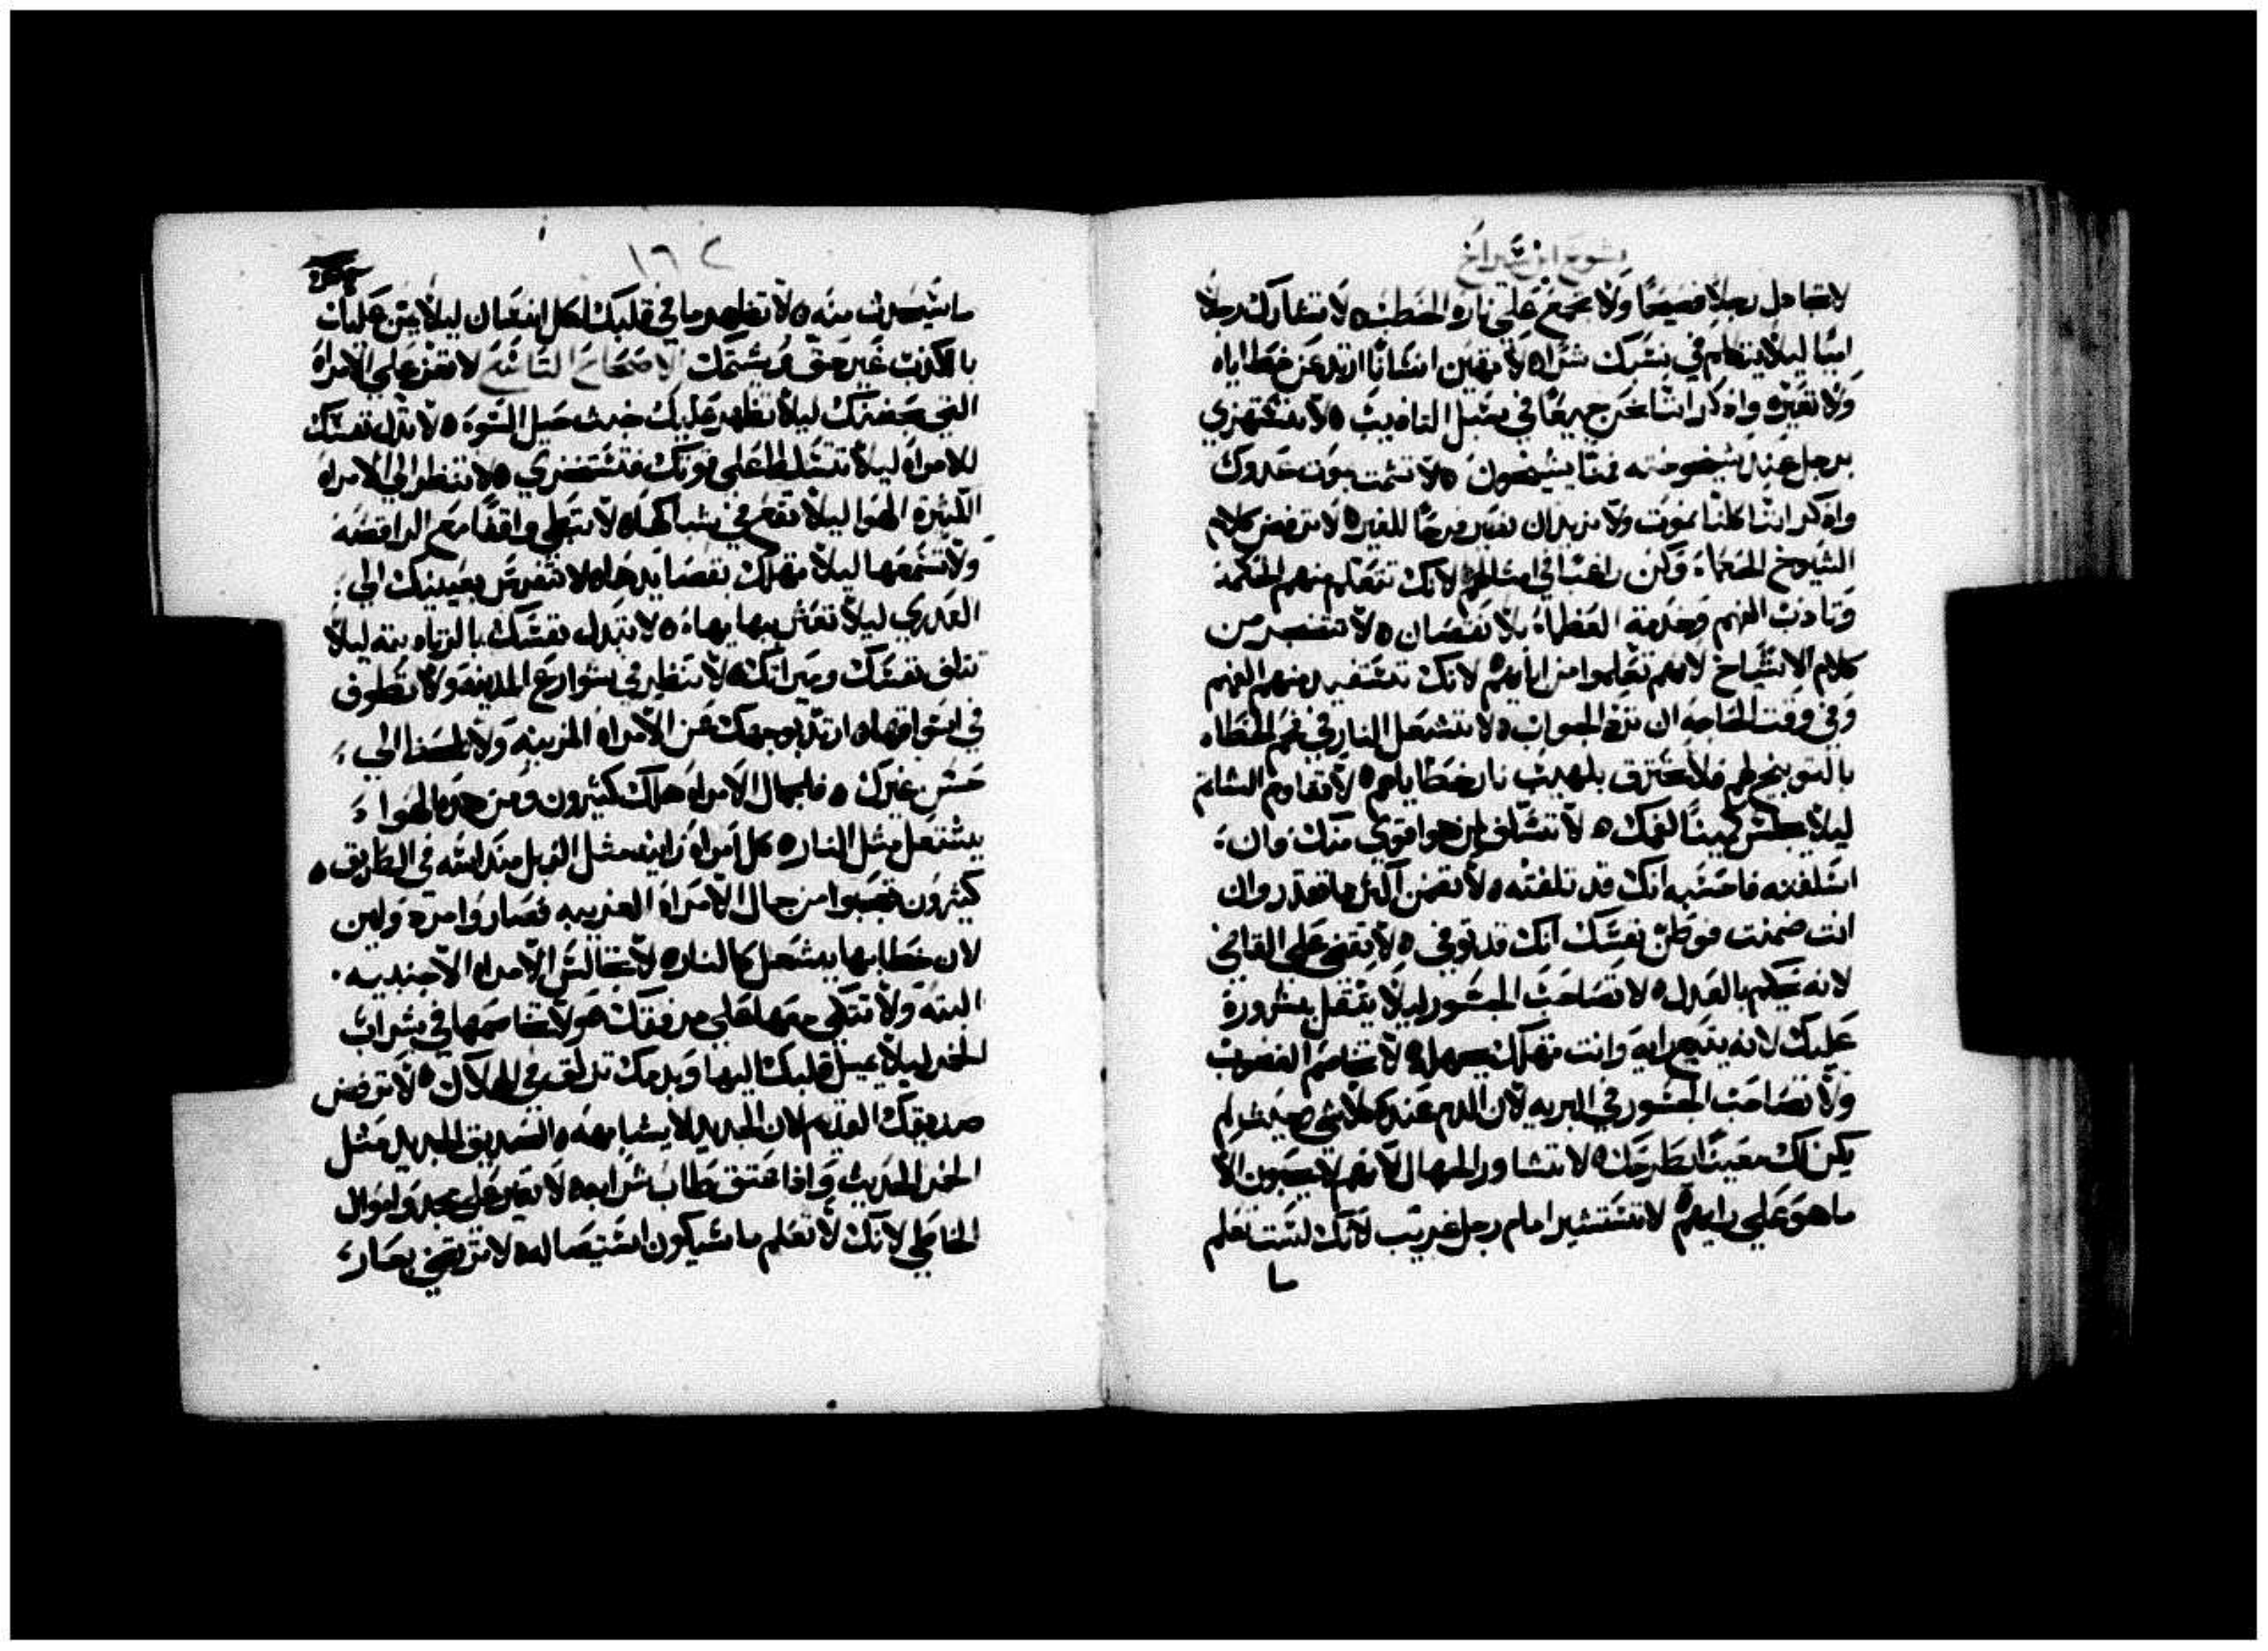 يشوع ابن شيراخ
لا تجادل رجلا فصيحا ولا تجمع علي ناره الحطب ه لا تشارك رجلا
اميا ليلا يتكلم في نسبك شرا ه لا تهين انسانا ارتد عن خطاياه
ولا تعيره واذكر اننا نحن جميعا في سبل التاديب ه لا تستهزي
برجل عند شيخوخته فمنا يشيخون ه لا تشمت بموت عدوك
واذكر اننا كلنا نموت ولا نريد ان نصير فرحا للغير ه لا ترفض كلام
الشيوخ الحكماء وكن راغبا في امثالهم لانك تتعلم منهم الحكمة
وتادب الفهم وخدمة العظماء بلا نقصان ه لا تتضجر من
كلام الاشياخ لانهم تعلموا من ابايهم لانك تستفيد منهم الفهم
وفي وقت الحاجه ان ترد الجواب ه لا تشعل النار في فحم الخطاه
بالتوبيخ لهم فلا تحترق بلهيب نار خطاياهم ه لا تقاوم الشاتم
ليلا يجلس كمينا لفمك ه لا تسلف لمن هو اقوي منك وان
اسلفته فاحسبه انك قد تلفته ه لا تضمن اكثر مما تقدر وان
انت ضمنت فوطن نفسك انك قد توفي ه لا تقضي علي القاضي
لانه يحكم بالعدل ه لا تصاحب الجسور ليلا يثقل بشروره
عليك لانه يتبع رايه وانت تهلك بجهله ه لا تخاصم الغضوب
ولا تصاحب الجسور في البريه لان الدم عنده كلا شي حيث لم
يكن لك معينا يطرحك ه لا تشاور الجهال لانهم لا يحبون الا
ما هو علي رايهم ه لا تستشير امام رجل غريب لانك لست تعلم
ما
١٦٢
ما سيحدث منه ه لا تظهر ما في قلبك لكل انسان ليلا يمن عليك
بالكذب غير حق ثم يشتمك الاصحاح التاسع لا تغر علي الامراه
التي بحضنك ليلا تظهر عليك خبث حيل السوء ه لا تذل نفسك
للامراه ليلا تتسلط علي قوتك فتستخزي ه لا تنظر الي الامراه
الكثيرة الهوا ليلا تقع في شباكها ه لا تبطي واقفا مع الراقصه
ولا تسمعها ليلا تهلك بقصايدها ه لا تتفرس بعينيك الي
العدري ليلا تعثر ببهايها ه لا تبدل نفسك بالزناه بته ليلا
تتلف نفسك وميراثك ه لا تنظر في شوارع المدينة ولا تطوف
في اسواقها ه ارتد بوجهك عن الامراه المزينه ولا تلتفت الي
حسن غيرك ه فلجمال الامراه هلك كثيرون ومن هذه الهوا
يشتعل مثل النار ه كل امراه زانيه مثل الزبل منداسه في الطريق ه
كثيرون تعجبوا من جمال الامراه الغريبه فصاروا مردولين
لان خطابها يشعل كالنار ه لا تجالس الامراه الاجنبيه
البته ولا تتكي معها علي مرفقك ه ولا تخاصمها في شراب
الخمر ليلا يميل قلبك اليها وبدمك تزلق في الهلاك ه لا ترفض
صديقك القديم لان الجديد لا يشابهه ه الصديق الجديد مثل
الخمر الحديث واذا عتق يطاب شرابه ه لا تغير علي مجد واموال
الخاطي لانك لا تعلم ما سيكون استيصاله ه لا ترتضي بعار